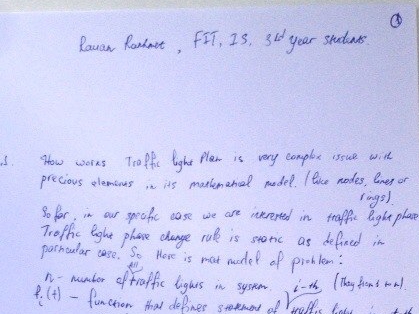 ①
Rauan Rakhmet, FIT, IS, 3rd year students.
1. How works Traffic light Plan is very complex issue with
precious elements in its mathematical model. (like nodes, lines or
rings).
So far, in our specific case we are interested in traffic light phase
Traffic light phase change rule is static as defined in
particular case. So Here is math model of problem:
all
n - number of traffic lights in system. i-th
(t) – function that defines statement of traffic light